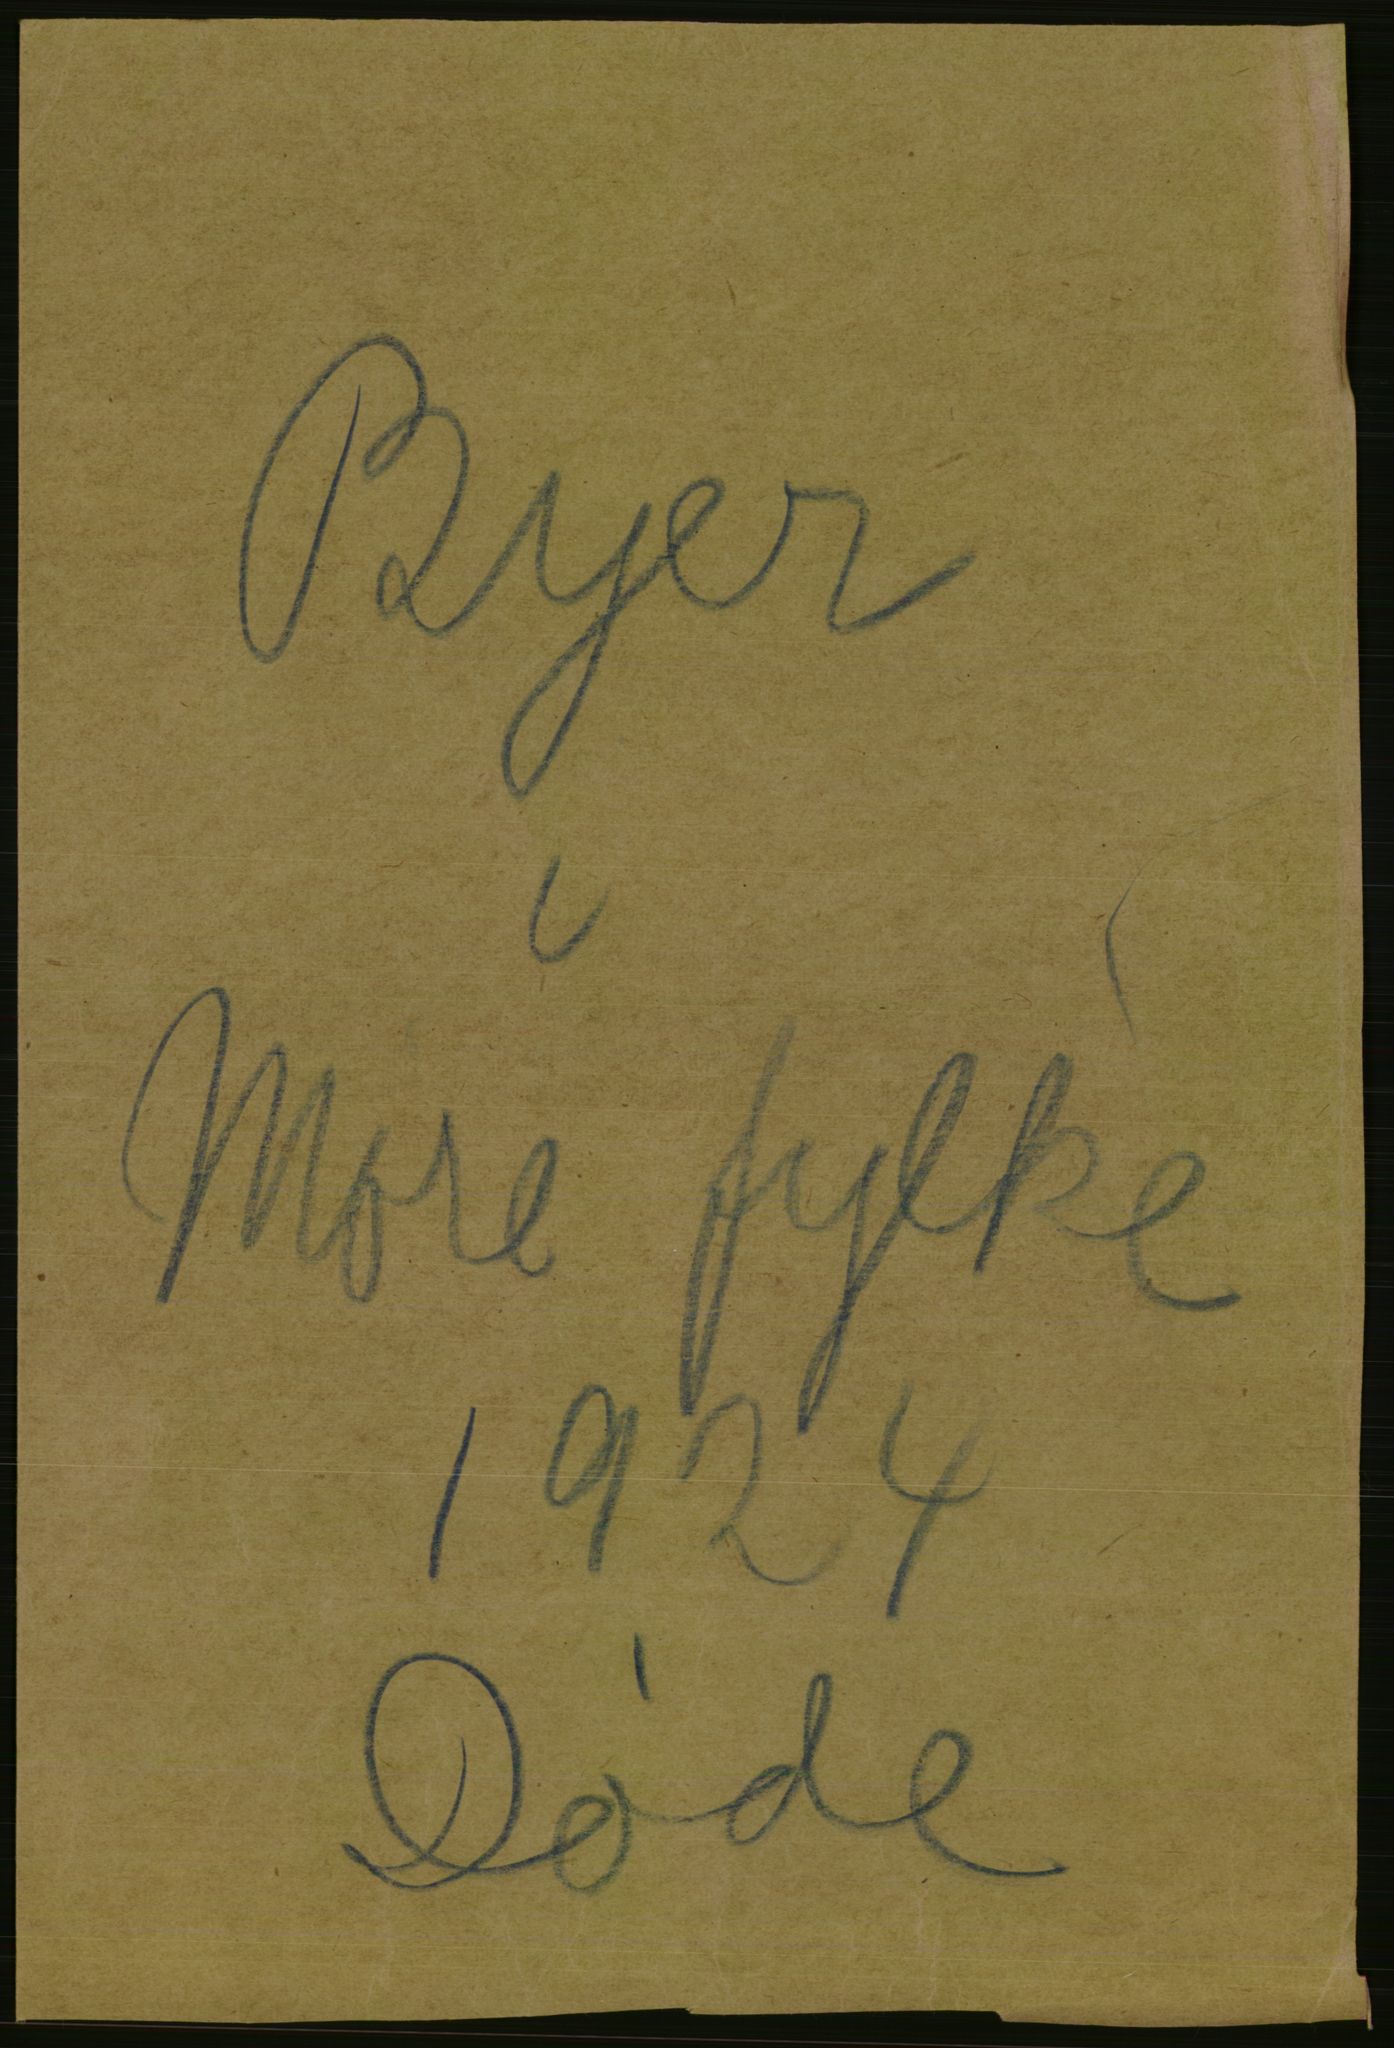 Byer
i
Møre fylke
1924
Døde